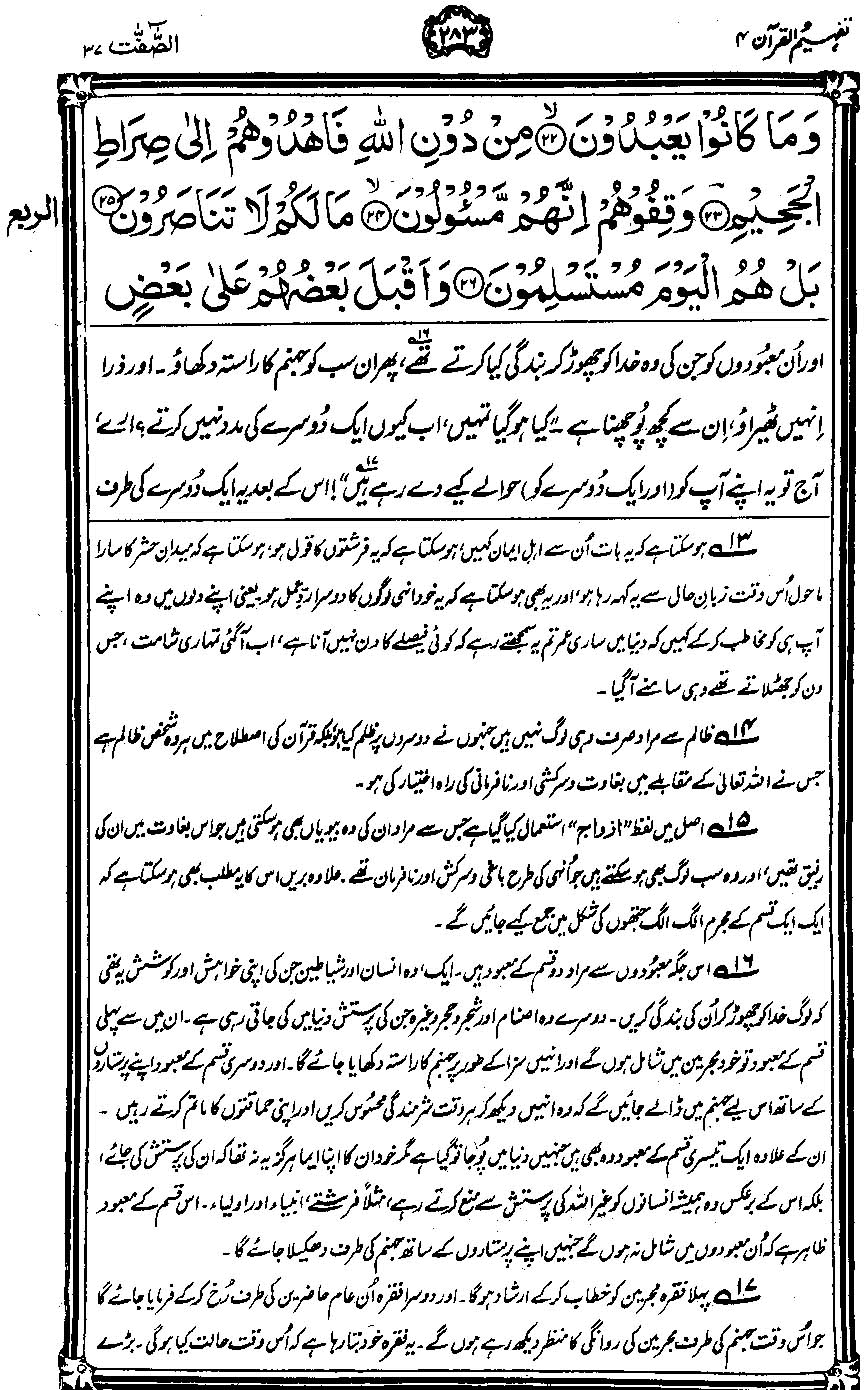 تفہیم القرآن ۴
۲۸۳
الصّٰٓفّٰت ۳۷
وَمَا كَانُوْا يَعْبُدُوْنَ ﴿۲۲﴾ۙ مِنْ دُوْنِ اللّٰهِ فَاهْدُوْهُمْ اِلٰى صِرَاطِ
الْجَحِيْمِ ﴿۲۳﴾ وَقِفُوْهُمْ اِنَّهُمْ مَّسْئُوْلُوْنَ ﴿۲۴﴾ۙ مَا لَكُمْ لَا تَنَاصَرُوْنَ ﴿۲۵﴾
الربع
بَلْ هُمُ الْيَوْمَ مُسْتَسْلِمُوْنَ ﴿۲۶﴾ وَاَقْبَلَ بَعْضُهُمْ عَلٰى بَعْضٍ
اور اُن معبودوں کو جن کی وہ خدا کو چھوڑ کر بندگی کیا کرتے تھے۱۶، پھر ان سب کو جہنم کا راستہ دکھاؤ۔ اور ذرا
اِنہیں ٹھیراؤ، اِن سے کچھ پُوچھنا ہے۔ "کیا ہو گیا تمہیں، اب کیوں ایک دُوسرے کی مدد نہیں کرتے؟ ارے،
آج تو یہ اپنے آپ کو (اور ایک دُوسرے کو) حوالے کیے دے رہے ہیں۱۷"! اس کے بعد یہ ایک دُوسرے کی طرف
۱۳ ہو سکتا ہے کہ یہ بات اُن سے اہلِ ایمان کہیں، ہو سکتا ہے کہ یہ فرشتوں کا قول ہو، ہو سکتا ہے کہ میدانِ حشر کا سارا
ماحول اُس وقت زبانِ حال سے یہ کہہ رہا ہو، اور یہ بھی ہو سکتا ہے کہ یہ خود انہی لوگوں کا دوسرا ردِّعمل ہو یعنی اپنے دلوں میں وہ اپنے
آپ ہی کو مخاطب کر کے کہیں کہ دنیا میں ساری عمر تم یہ سمجھتے رہے کہ کوئی فیصلے کا دن نہیں آنا ہے، اب آگئی تمہاری شامت، جس
دن کو جھٹلاتے تھے وہی سامنے آگیا۔
۱۴ ظالم سے مراد صرف وہی لوگ نہیں ہیں جنہوں نے دوسروں پر ظلم کیا ہو، بلکہ قرآن کی اصطلاح میں ہر وہ شخص ظالم ہے
جس نے اللہ تعالیٰ کے مقابلے میں بغاوت و سرکشی اور نافرمانی کی راہ اختیار کی ہو۔
۱۵ اصل میں لفظ "ازواج" استعمال کیا گیا ہے جس سے مراد ان کی وہ بیویاں بھی ہو سکتی ہیں جو اس بغاوت میں ان کی
رفیق تھیں، اور وہ سب لوگ بھی ہو سکتے ہیں جو اُنہی کی طرح باغی و سرکش اور نافرمان تھے۔ علاوہ بریں اس کا یہ مطلب بھی ہو سکتا ہے کہ
ایک ایک قسم کے مجرم الگ الگ جتھوں کی شکل میں جمع کیے جائیں گے۔
۱۶ اس جگہ معبُودوں سے مراد دو قسم کے معبود ہیں۔ ایک، وہ انسان اور شیاطین جن کی اپنی خواہش اور کوشش یہ تھی
کہ لوگ خدا کو چھوڑ کر اُن کی بندگی کریں۔ دوسرے وہ اصنام اور شجر و حجر وغیرہ جن کی پرستش دنیا میں کی جاتی رہی ہے۔ ان میں سے پہلی
قسم کے معبود تو خود مجرمین میں شامل ہوں گے اور انہیں سزا کے طور پر جہنم کا راستہ دکھایا جائے گا۔ اور دوسری قسم کے معبود اپنے پرستاروں
کے ساتھ اس لیے جہنم میں ڈالے جائیں گے کہ وہ انہیں دیکھ کر ہر وقت شرمندگی محسُوس کریں اور اپنی حماقتوں کا ماتم کرتے رہیں۔
ان کے علاوہ ایک تیسری قسم کے معبود وہ بھی ہیں جنہیں دنیا میں پُوجا تو گیا ہے مگر خود ان کا اپنا ایما ہرگز یہ نہ تھا کہ ان کی پرستش کی جائے،
بلکہ اس کے برعکس وہ ہمیشہ انسانوں کو غیر اللہ کی پرستش سے منع کرتے رہے، مثلاً فرشتے، انبیاء اور اولیاء۔ اس قسم کے معبود
ظاہر ہے کہ اُن معبودوں میں شامل نہ ہوں گے جنہیں اپنے پرستاروں کے ساتھ جہنم کی طرف دھکیلا جائے گا۔
۱۷ پہلا فقرہ مجرمین کو خطاب کر کے ارشاد ہوگا۔ اور دوسرا فقرہ اُن عام حاضرین کی طرف رُخ کر کے فرمایا جائے گا
جو اُس وقت جہنم کی طرف مجرمین کی روانگی کا منظر دیکھ رہے ہوں گے۔ یہ فقرہ خود بتا رہا ہے کہ اُس وقت حالت کیا ہوگی۔ بڑے